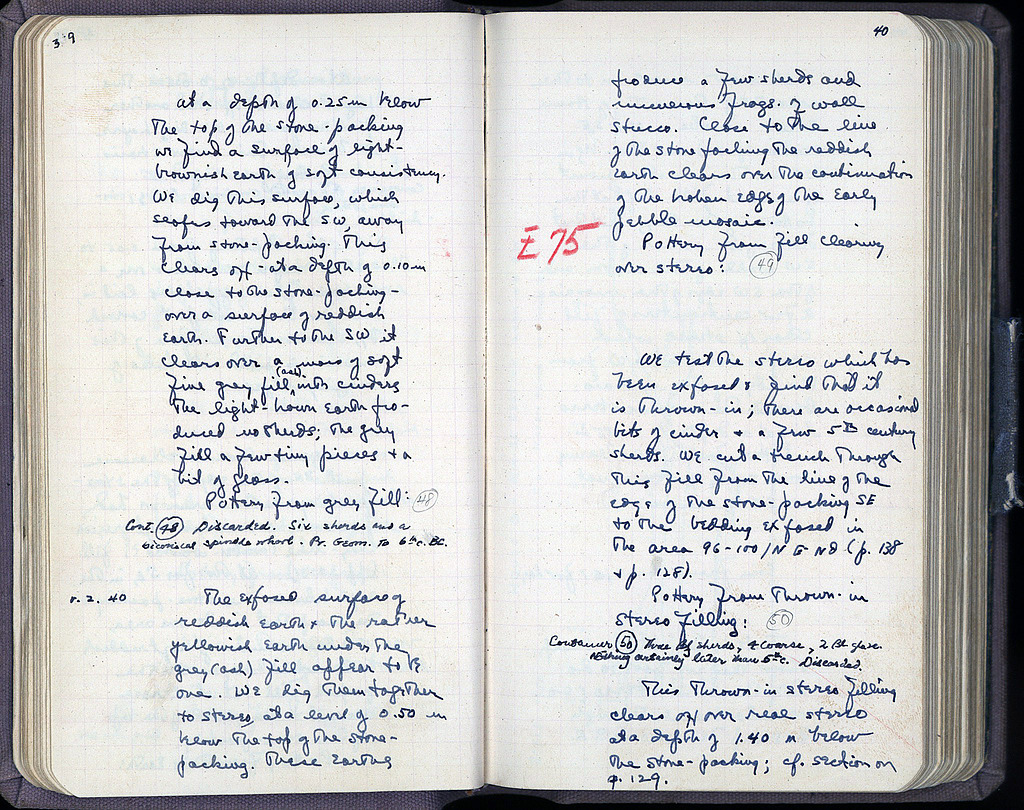 39
at a depth of 0.25 m below
the top of the stone-packing
we find a surface of light-
brownish earth of soft consistency.
We dig this surface, which
slopes toward the SW, away
from stone-packing. This
clears off - at a depth of 0.10 m
close to the stone-packing -
over a surface of reddish
earth. Further to the SW it
clears over a mass of soft
fine grey (ash) fill, with cinders
The light-brown earth pro-
duced no sherds; the grey
fill a few tiny pieces & a
bit of glass.
Pottery from grey fill: 48
Cont. 48 Discarded. Six sherds and a
biconical spindle whorl. Pr. Geom. to 6th c. BC.
V. 2. 40 The exposed surface of
reddish earth & the rather
yellowish earth under the
grey (ash) fill appear to be
one. We dig them together
to stereo, at a level of 0.50 m
below the top of the stone-
packing. These earths
40
produce a few sherds and
numerous frags. of wall
stucco. Close to the line
of the stone packing the reddish
earth clears over the continuation
of the broken edge of the early
pebble mosaic.
Pottery from fill clearing
over stereo: 49
E 75
We test the stereo which has
been exposed & find that it
is thrown-in; there are occasional
bits of cinder & a few 5th century
sherds. We cut a trench through
this fill from the line of the
edge of the stone-packing SE
to the bedding exposed in
the area 96-100/ (p. 138
& p. 128).
Pottery from thrown-in
stereo filling: 50
Container 50 Three sherds, coarse, 2 Bl. glaze.
Nothing certainly later than 5th c. Discarded.
This thrown-in stereo filling
clears off over real stereo
at a depth of 1.40 m below
the stone-packing; cf. section on
p. 129.